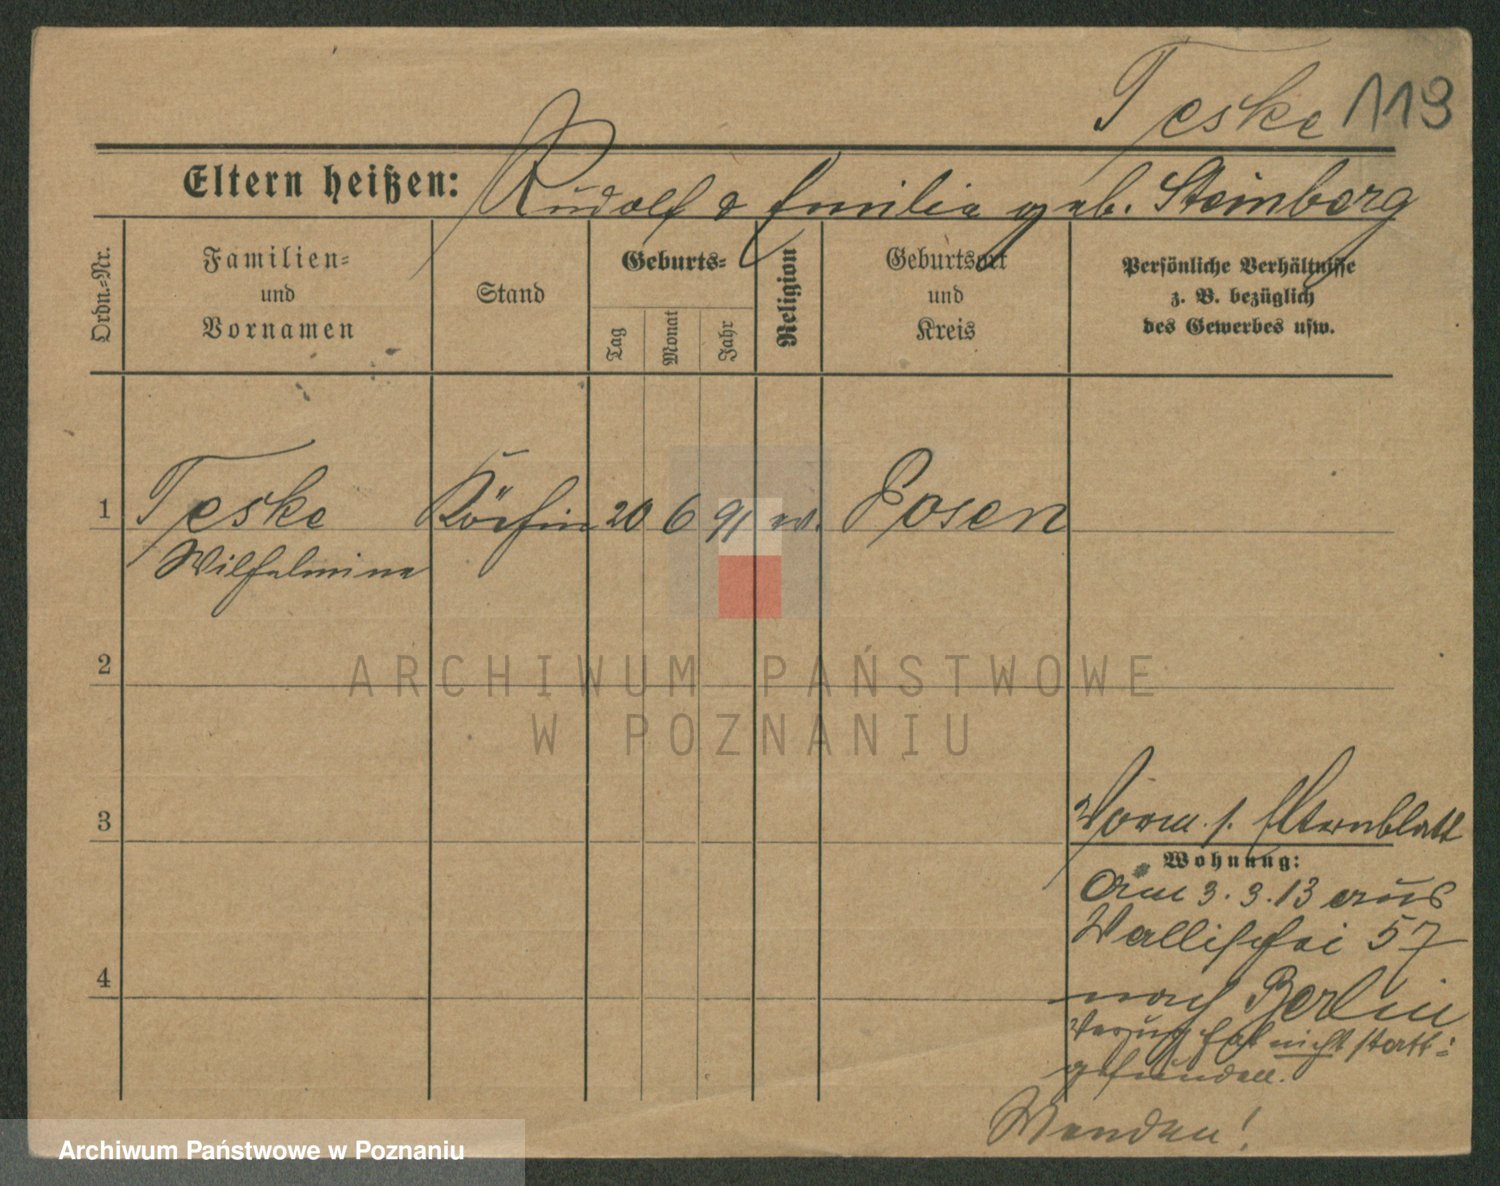 Teske 119
Eltern heißen: Rudolf & Emilie geb. Steinberg
Ordn.-Nr.
Familien- und Vornamen
Stand
Geburts-
Tag
Monat
Jahr
Religion
Geburtsort und Kreis
Persönliche Verhältnisse
z. B. bezüglich
des Gewerbes usw.
1 Teske 20 6 91 ev. Posen
Wilhelmine
2
3
Vorm. s. Elternblatt
Wohnung:
Am 3. 3. 13 aus
Wallischei 57
4
nach Berlin
Verzug hat nicht statt-
gefunden.
Wenden!
ARCHIWUM PAŃSTWOWE
W POZNANIU
Archiwum Państwowe w Poznaniu